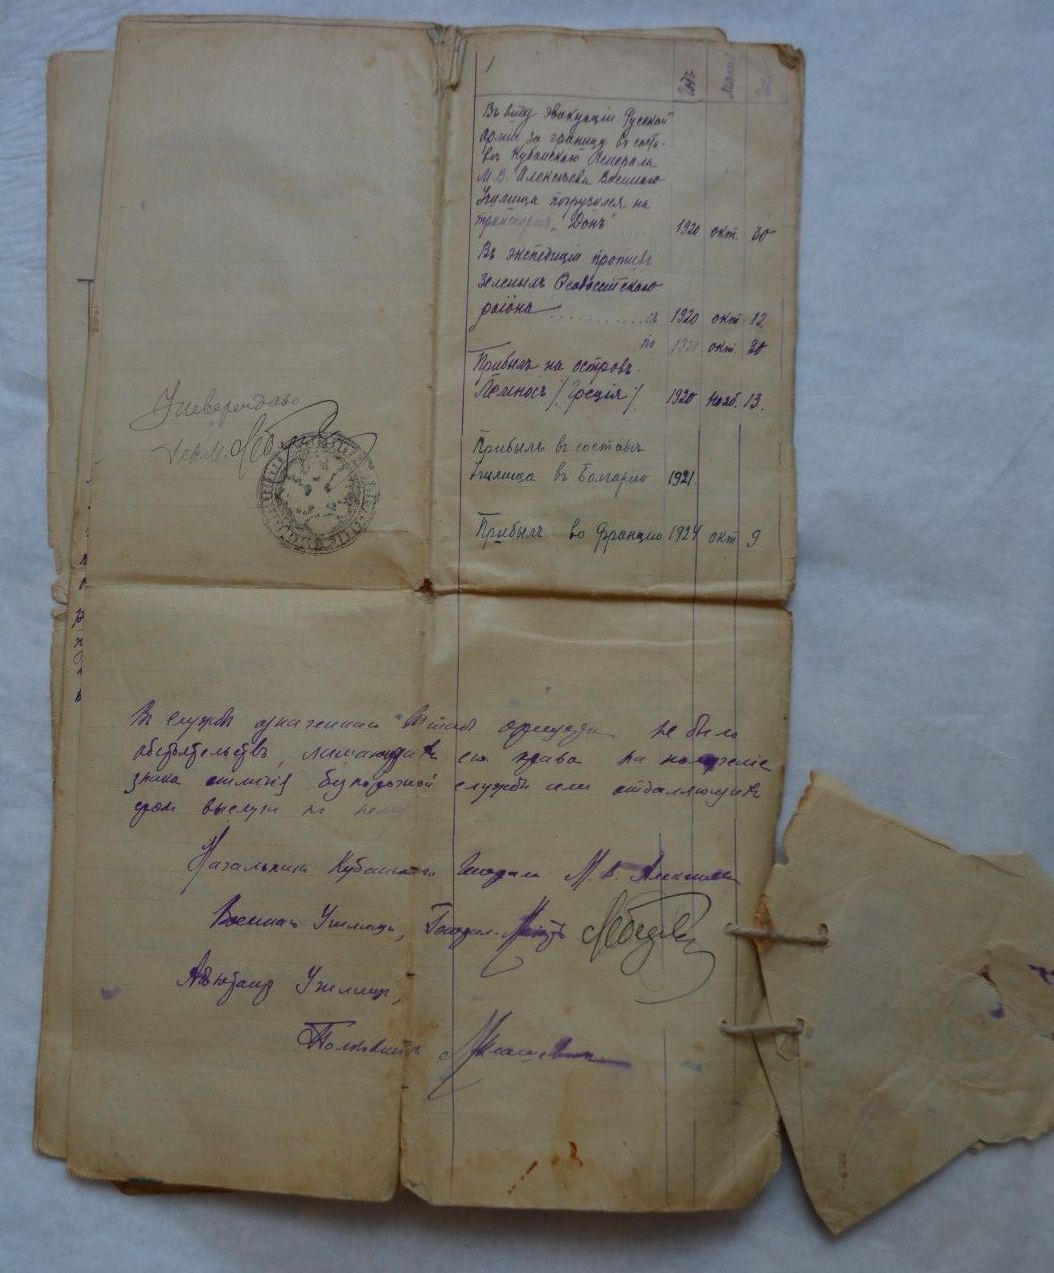 1
Годъ
Въ виду эвакуаціи Русской
Арміи за границу въ соста-
вѣ Кубанскаго Генерала
М. В. Алексѣева Военнаго
Училища погрузился на
транспортъ „Донъ“ ..... 1920 окт. 30
Въ экспедиціи противъ
зеленыхъ Феодосійскаго
района ........... съ 1920 окт 12
по 1920 окт. 30
Прибылъ на островъ
Лемносъ /Греція/. 1920 нояб. 13.
Прибылъ въ составѣ
Училища въ Болгарію 1921
Прибылъ во Францію 1924 окт 9
Ген. М. Лебедевъ
Въ службѣ означеннаго штабъ офицера не было
обстоятельствъ, лишающихъ его права на полученіе
знака отличія безпорочной службы или отдаляющихъ
срокъ выслуги къ нему
Начальникъ Кубанскаго Генерала М. В. Алексѣева
Военнаго Училища, Генералъ-Маіоръ Лебедевъ
Адъютантъ Училища,
Полковникъ